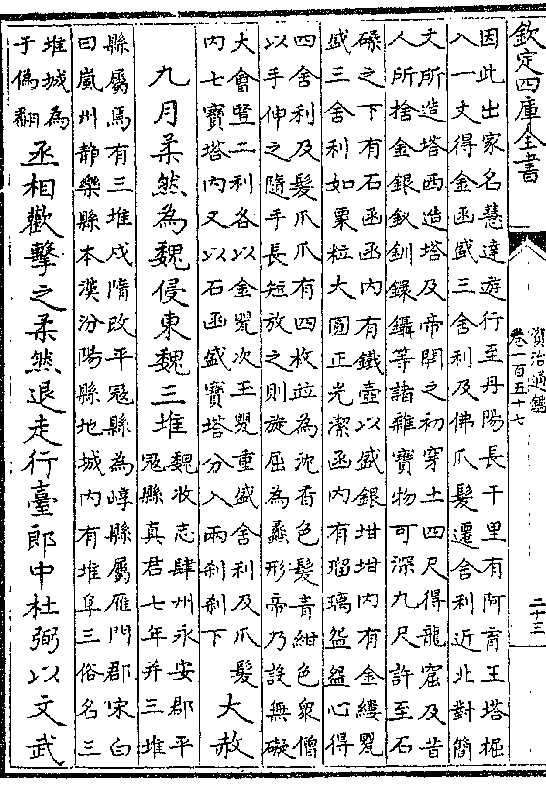 欽定四庫全書
資治通鑑
卷一百五十七
二十三
因此出家名慧達遊行至丹陽長干里有阿育王塔掘
入一丈得金函盛三舍利及佛爪髮遷舍利近北對簡
文所造塔西造塔及帝開之初穿土四尺得龍窟及昔
人所捨金銀釵釧鐶鑷等諸雜寶物可深九尺許至石
磉之下有石函函內有鐵壺以盛銀坩坩內有金縷罌
盛三舍利如粟粒大圓正光潔函內有瑠璃盌盌心得
四舍利及髮爪爪有四枚竝為沈香色髮青紺色衆僧
以手伸之隨手長短放之則旋屈為蠡形帝乃設無礙
大會豎二利各以金罌次玉罌重盛舍利及爪髮
內七寶塔內又以石函盛寶塔分入兩刹刹下
大赦
九月柔然為魏侵東魏三堆
魏收志肆州永安郡平
寇縣真君七年并三堆
縣屬焉有三堆戍隋改平寇縣為崞縣屬雁門郡宋白
曰嵐州靜樂縣本漢汾陽縣地城內有堆阜三俗名三
堆城為
于偽翻
丞相歡擊之柔然退走行臺郎中杜弼以文武